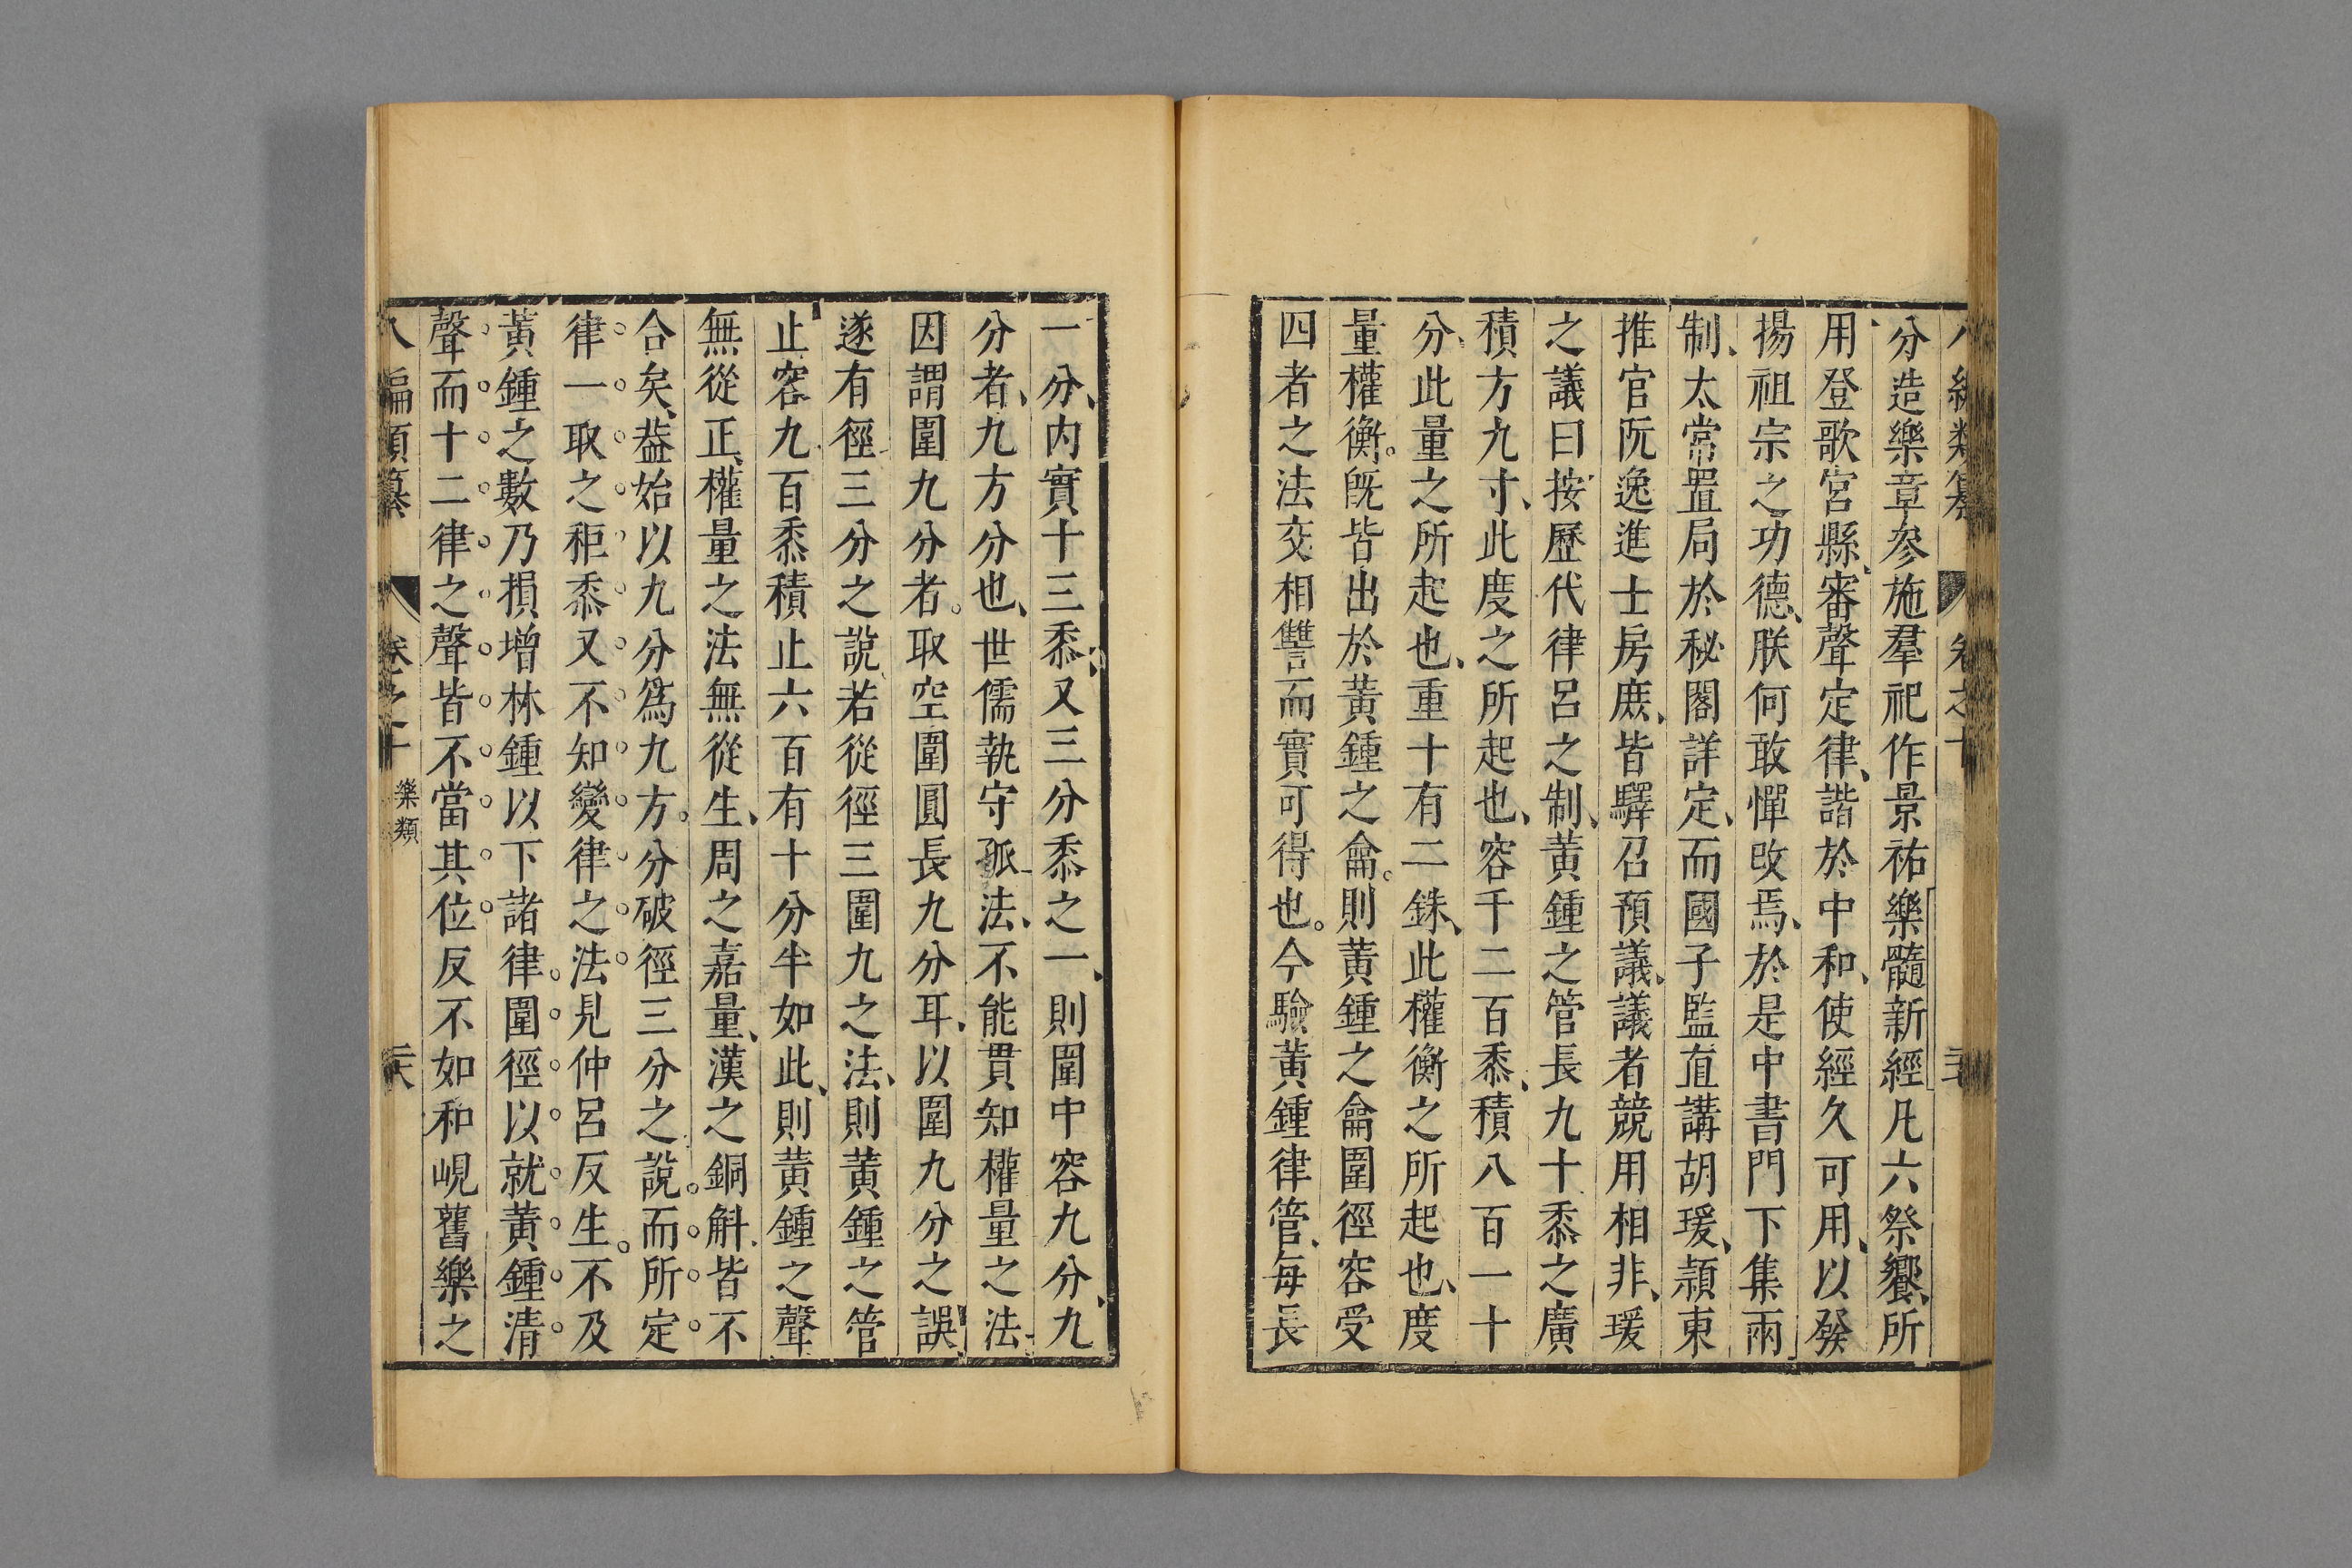 分造樂章參施羣祀作景祐樂髓新經凡六祭饗、所
用登歌宮縣、審聲定律、諧於中和、使經久可用、以發
揚祖宗之功德、朕何敢憚改焉、於是中書門下集兩
制、太常置局於秘閣詳定、而國子監直講胡瑗、潁東
推官阮逸進士房庶、皆驛召預議、議者競用相非、瑗
之議曰按歷代律呂之制、黃鍾之管長九十黍之廣
積方九寸、此度之所起也、容千二百黍、積八百一十
分、此量之所起也、重十有二銖、此權衡之所起也、度
量權衡。旣皆出於黃鍾之龠。則黃鍾之龠圍徑容受
四者之法交相讐而實可得也。今驗黃鍾律管、每長
一分、內實十三黍、又三分黍之一、則圍中容九分、九
分者、九方分也、世儒執守孤法、不能貫知權量之法、
因謂圍九分者。取空圍圓長九分耳、以圍九分之誤
遂有徑三分之說若從徑三圍九之法、則黃鍾之管
止容九百黍積止六百有十分半如此、則黃鍾之聲
無從正、權量之法無從生、周之嘉量、漢之銅斛、皆不
合矣、葢始以九分爲九方。分破徑三分之說。而所定
律一取之秬黍又不知變律之法見仲呂反生。不及
黃鍾之數乃損增林鍾以下諸律圍徑以就黃鍾清
聲而十二律之聲皆不當其位反不如和峴舊樂之
卷之十 樂類